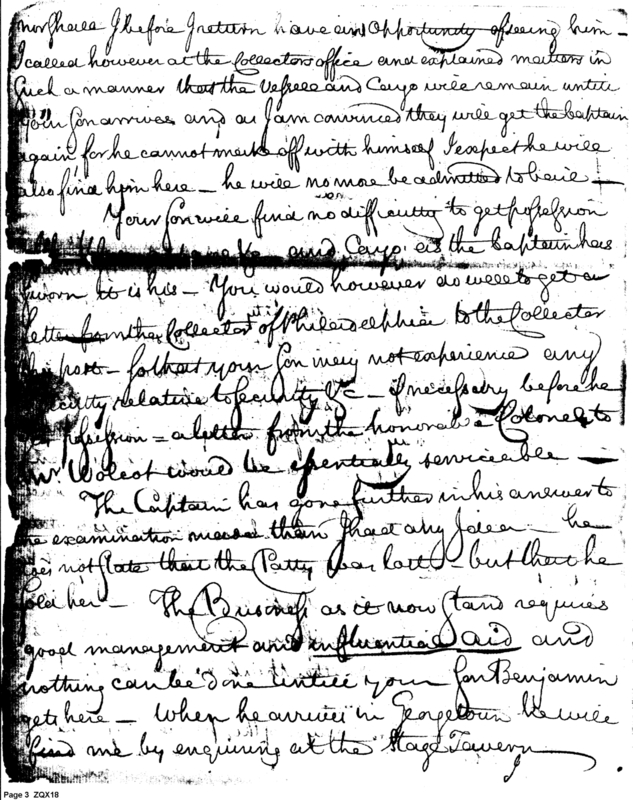 nor shall I before I return have any Opportunity of seeing him —
I called however at the Collectors office and explained matters in
Such a manner that the Vessell and Cargo will remain untill
your Son arrives and as I am convinced they will get the Captain
again for he cannot make off with himself I expect he will
also find him here — he will no more be admitted to bail —
Your Son will find no difficulty to get possession
and Cargo as the Captain has
sworn it is his — You would however do well to get a
letter from the Collector of Philadelphia to the Collector
port — so that your Son may not experience any
relative to Security &c — if necessary before he
possession = a letter from the honorable Colonel to
Mr. Wolcot would be essentially serviceable —
The Captain has gone further in his answer to
the examination than I had any Idea — he
does not state that the Patty was lost — but that he
sold her — The Business as it now stand requires
good management and influential aid and
nothing can be done untill your Son Benjamin
gets here — When he arrives in Georgetown he will
find me by enquiring at the Stage Tavern
Page 3 ZQX18